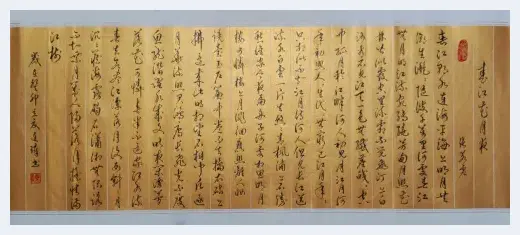 春江花月夜
張若虚
春江潮水連海平海上明月共
潮生灩灩隨波千萬里何處春江
無月明江流宛轉遶芳甸月照花
林皆似霰空里流霜不覺飛汀上白
沙看不見江天一色無纖塵皎皎空
中孤月輪江畔何人初見月江月何
年初照人人生代代無窮已江月年年
只相似不知江月待何人但見長江送
流水白雲一片去悠悠青楓浦上不勝
愁誰家今夜扁舟子何處相思明月
樓可憐樓上月徘徊應照離人妝
鏡臺玉户簾中卷不去擣衣砧上
拂還來此時相望不相聞願逐
月華流照君鴻雁長飛光不度
魚龍潛躍水成文昨夜閑潭夢
落花可憐春半不還家江水流
春去欲盡江潭落月復西斜斜月
沉沉藏海霧碣石瀟湘無限路
不知乘月幾人歸落月摇情滿
江樹
歲在癸卯